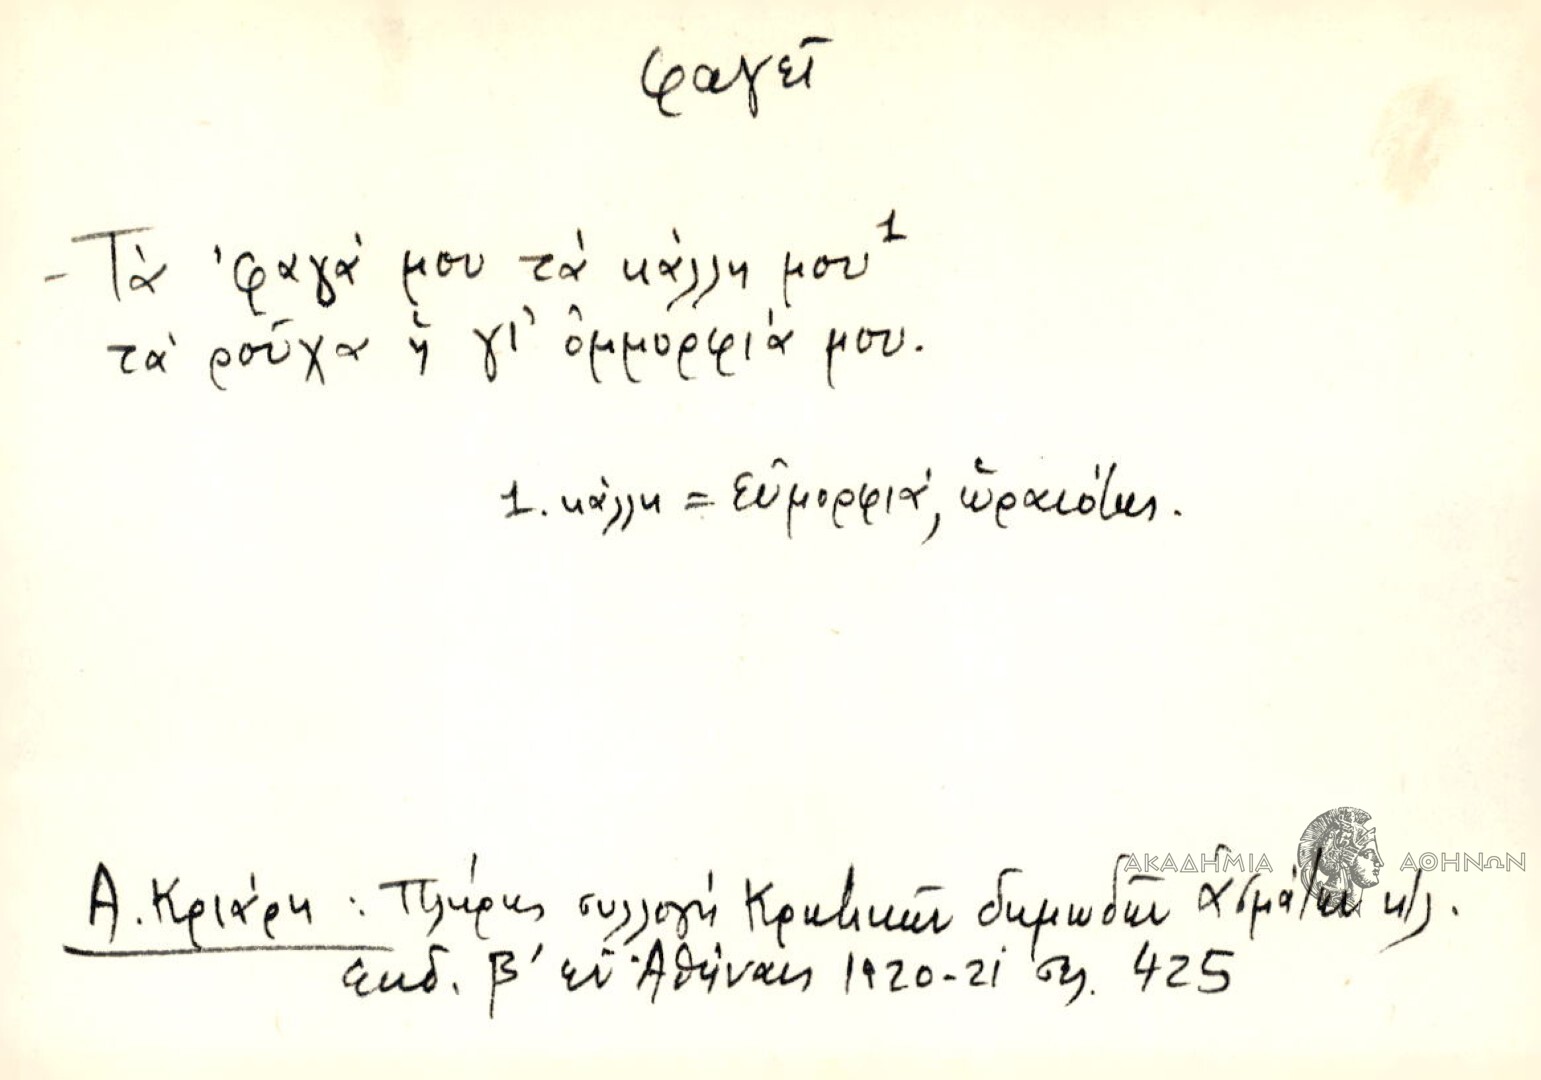 φαγεῖ
- Τὰ 'φαγά μου τὰ κάλλη μου¹
τὰ ροῦχα ἡ γι' ὀμμορφιά μου.
1. κάλλη = εὐμορφιά, ὡραιότης.
ΑΚΑΔΗΜΙΑ ΑΘΗΝΩΝ
Α. Κριάρη : Πλήρης συλλογή Κρητικῶν δημωδῶν ἀσμάτων κτλ.
ἐκδ. β' ἐν Ἀθήναις 1920-21 σελ. 425